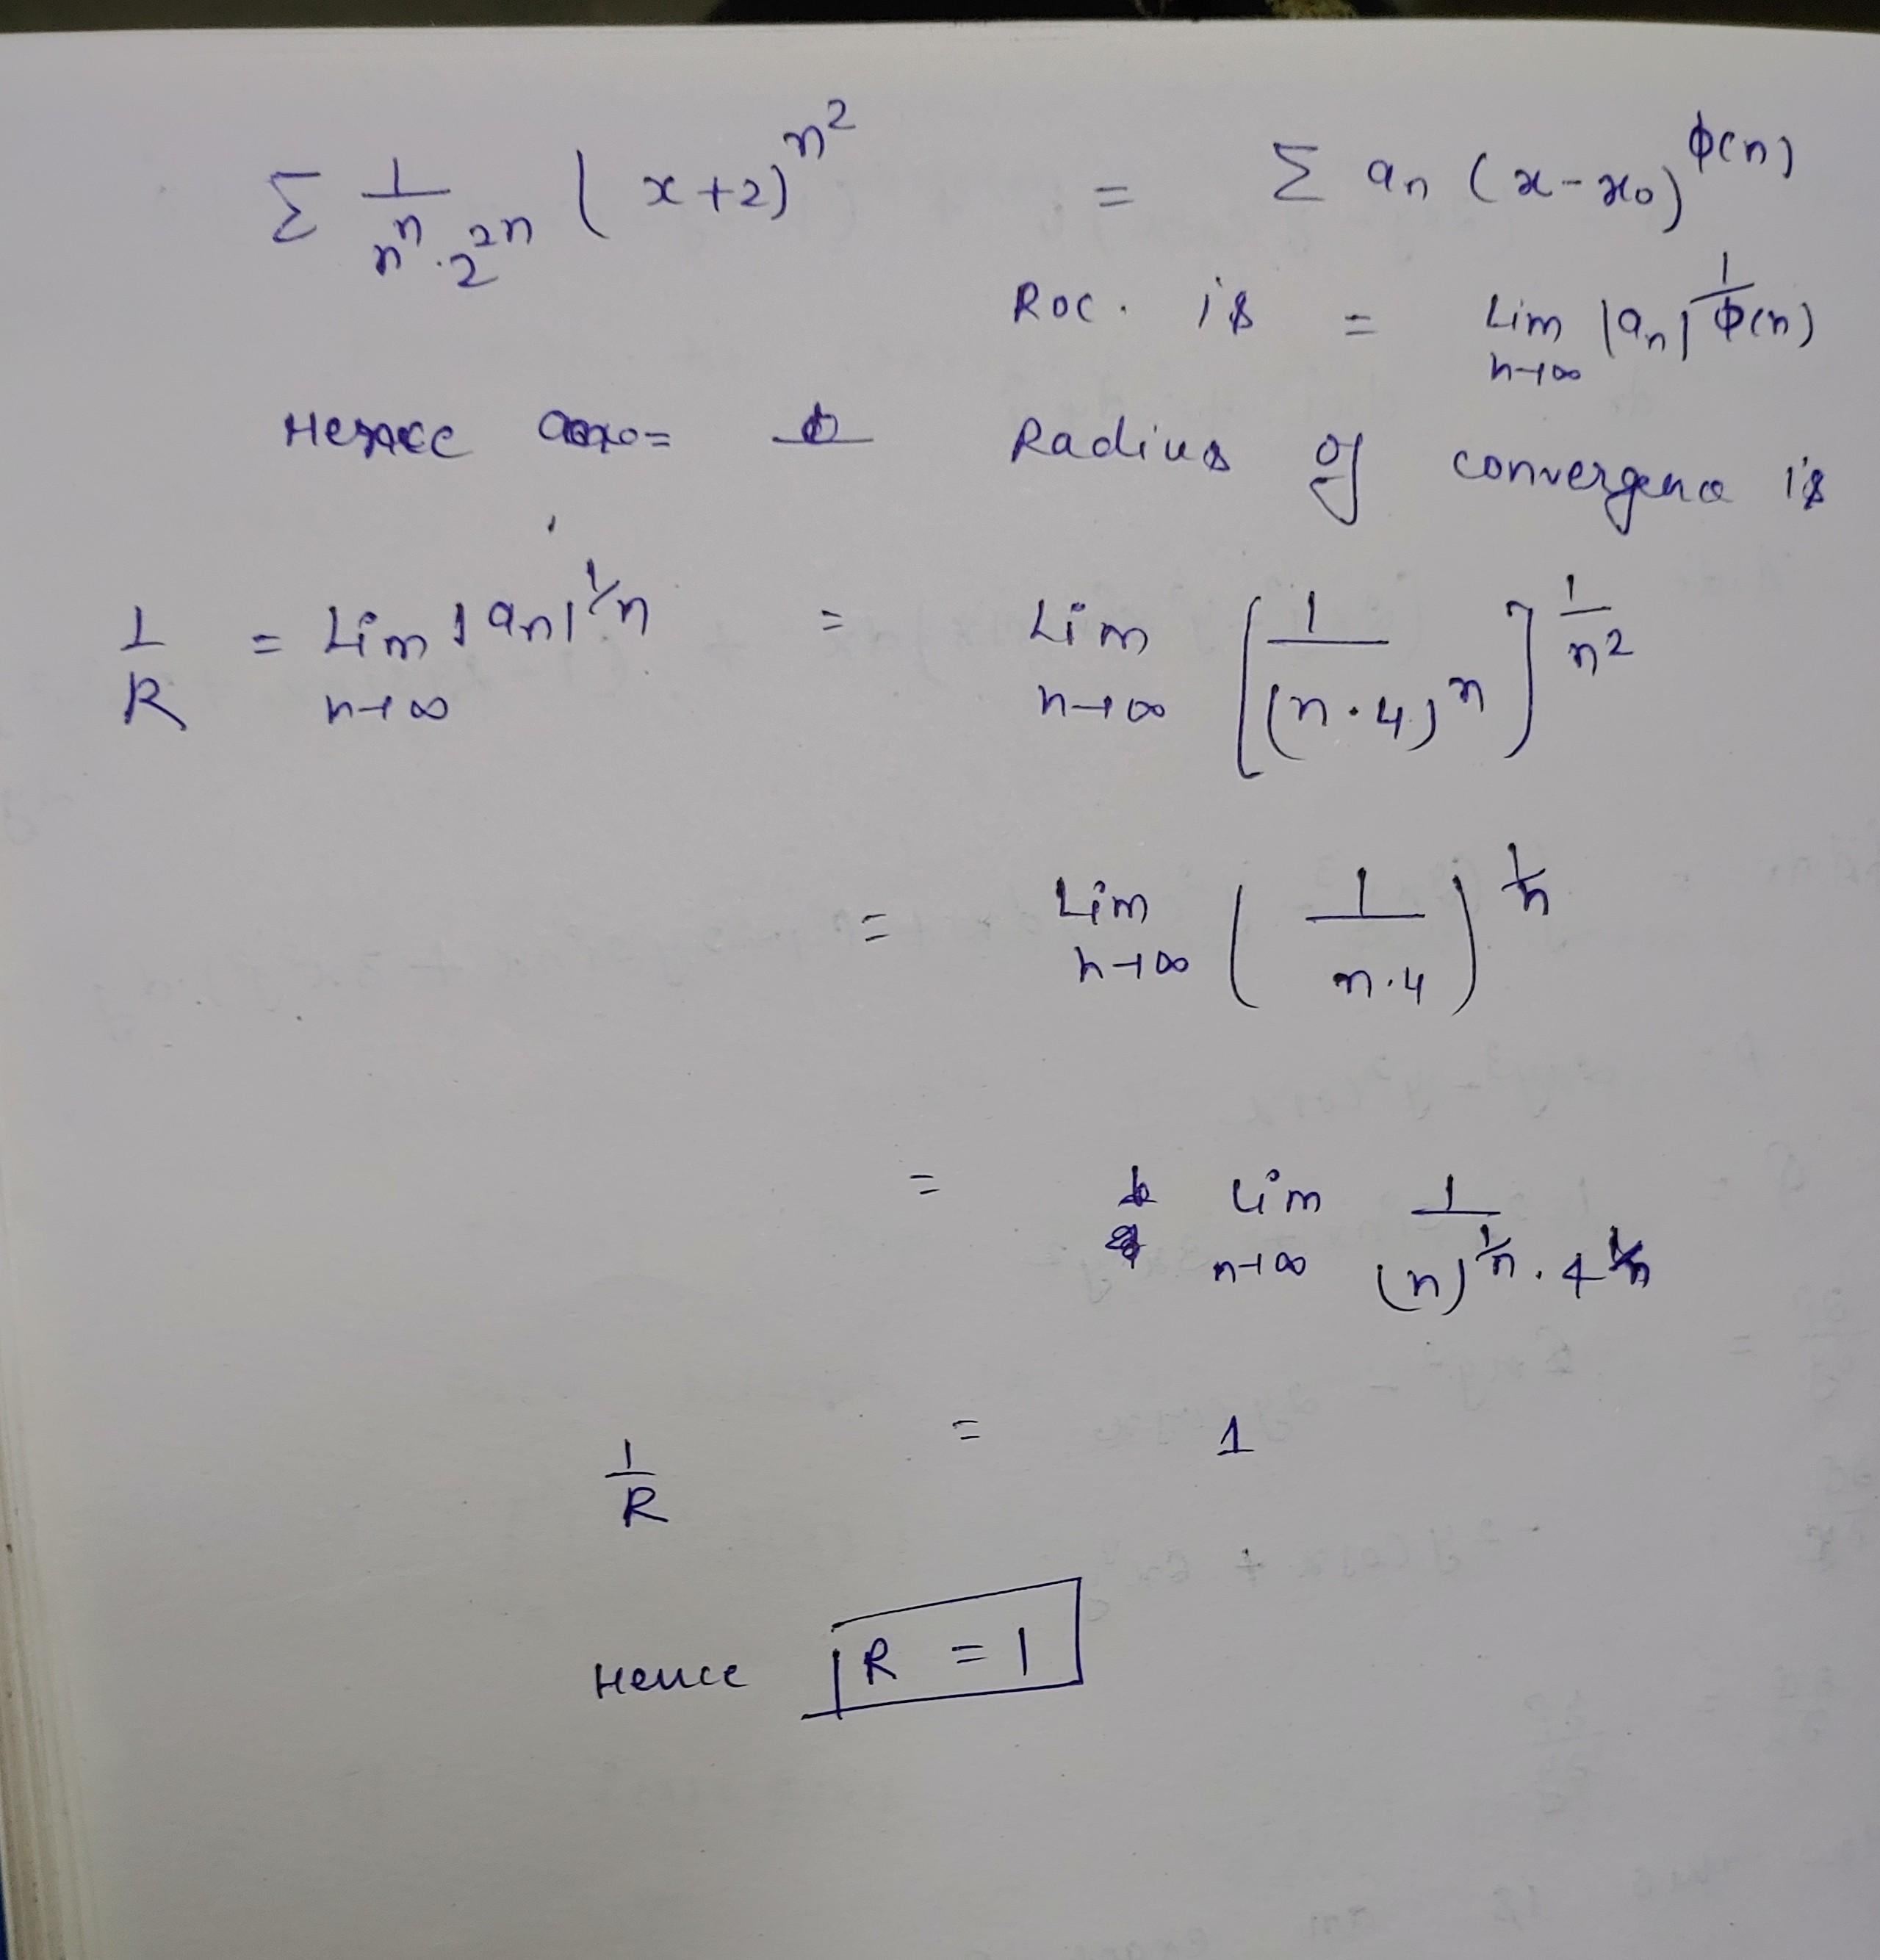 Σ 1/(n^n · 2^2n) (x+2)^n^2 = Σ a_n (x-x_0)^φ(n)
Roc. is = Lim n→∞ |a_n|^1/φ(n)
Radius of convergence is
1/R = Lim n→∞ |a_n|^1/n = Lim n→∞ [1/(n·4)^n]^1/n^2
= Lim n→∞ (1/n·4)^1/n
= Lim n→∞ 1/((n)^1/n · 4^1/n)
1/R = 1
Hence R = 1